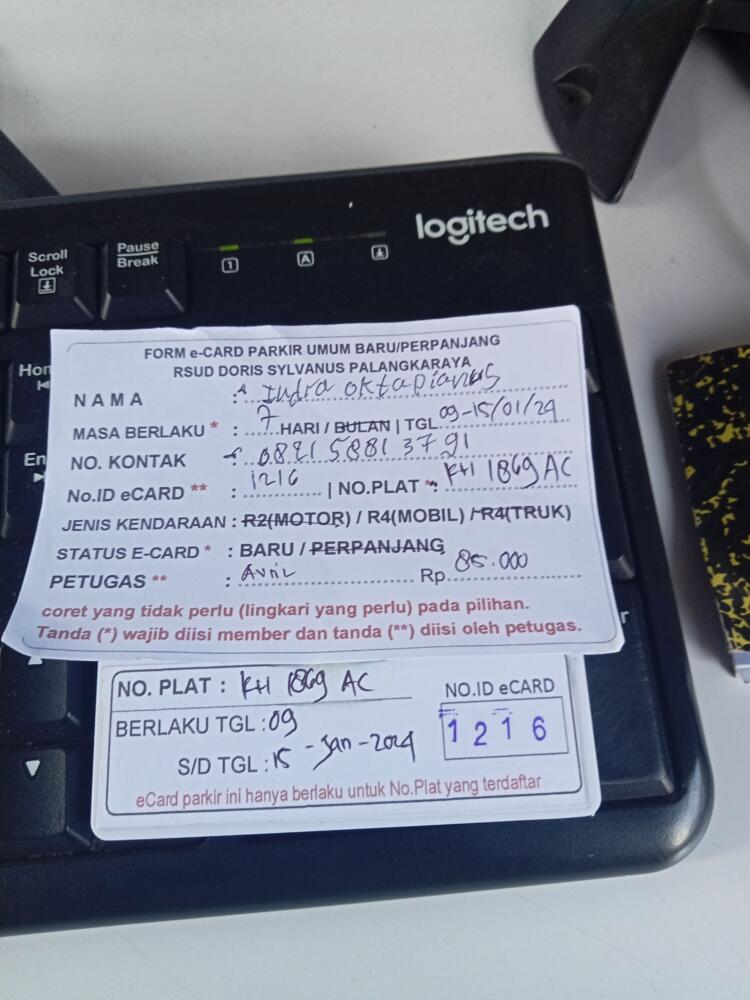 logitech
Scroll Lock
Pause Break
1 A
FORM e-CARD PARKIR UMUM BARU/PERPANJANG
RSUD DORIS SYLVANUS PALANGKARAYA
NAMA : Indra oktapianus
MASA BERLAKU * : 7 HARI / BULAN | TGL 09-15/01/24
NO. KONTAK : 082158813791
No.ID eCARD ** : 1216 | NO.PLAT *: KH 1869 AC
JENIS KENDARAAN : R2(MOTOR) / R4(MOBIL) / R4(TRUK)
STATUS E-CARD * : BARU / PERPANJANG
PETUGAS ** : Avril Rp. 85.000
coret yang tidak perlu (lingkari yang perlu) pada pilihan.
Tanda (*) wajib diisi member dan tanda (**) diisi oleh petugas.
NO. PLAT : KH 1869 AC
NO.ID eCARD
BERLAKU TGL : 09
1 2 1 6
S/D TGL : 15 - Jan - 2024
eCard parkir ini hanya berlaku untuk No.Plat yang terdaftar